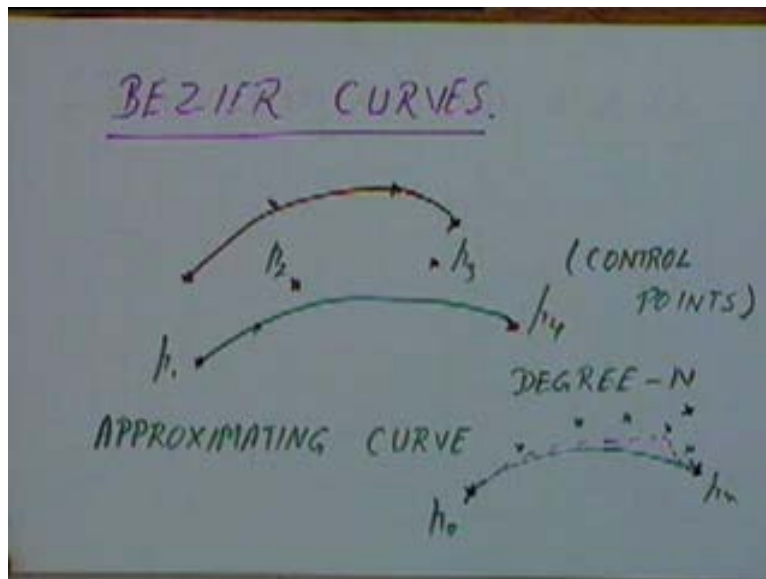 BEZIER CURVES.
p2
p3
(CONTROL
POINTS)
p1
p4
DEGREE-N
APPROXIMATING CURVE
p0
pn